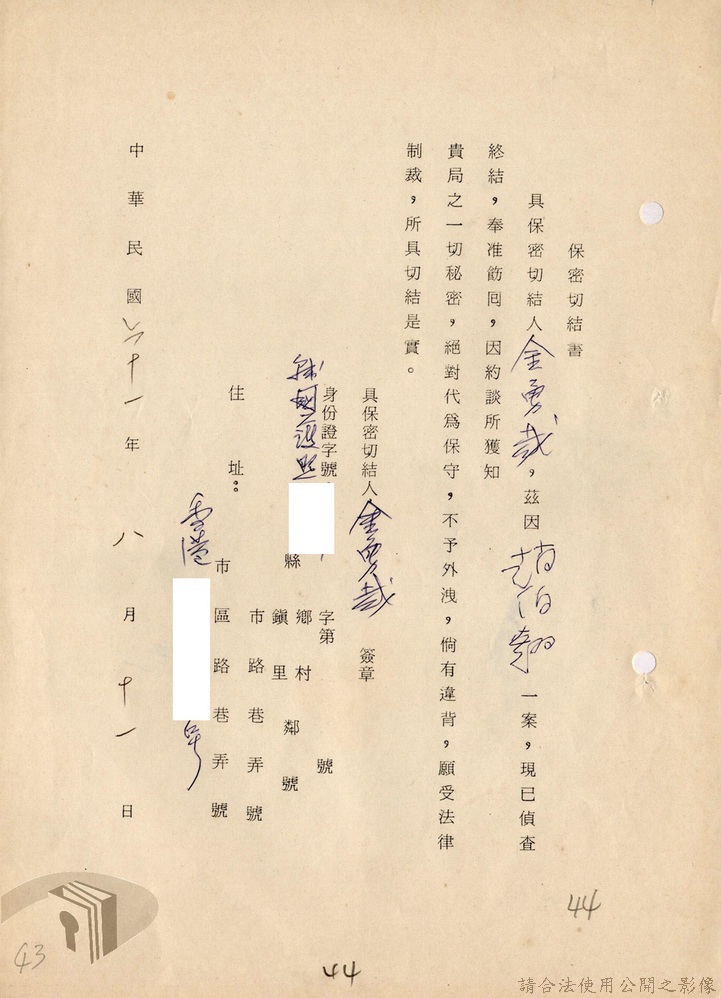 保密切結書
具保密切結人金勇哉，茲因趙伯翹一案，現已偵查
終結，奉准飭囘，因約談所獲知
貴局之一切秘密，絕對代為保守，不予外洩，倘有違背，願受法律
制裁，所具切結是實。
具保密切結人金勇哉 簽章
身份證字號 字第 號
韓國護照
縣 鄉鎮 村里 鄰 號
住址： 市路巷弄號
市區路巷弄號
香港 号
中華民國六十一年 八月 十一日
44
44
43
請合法使用公開之影像